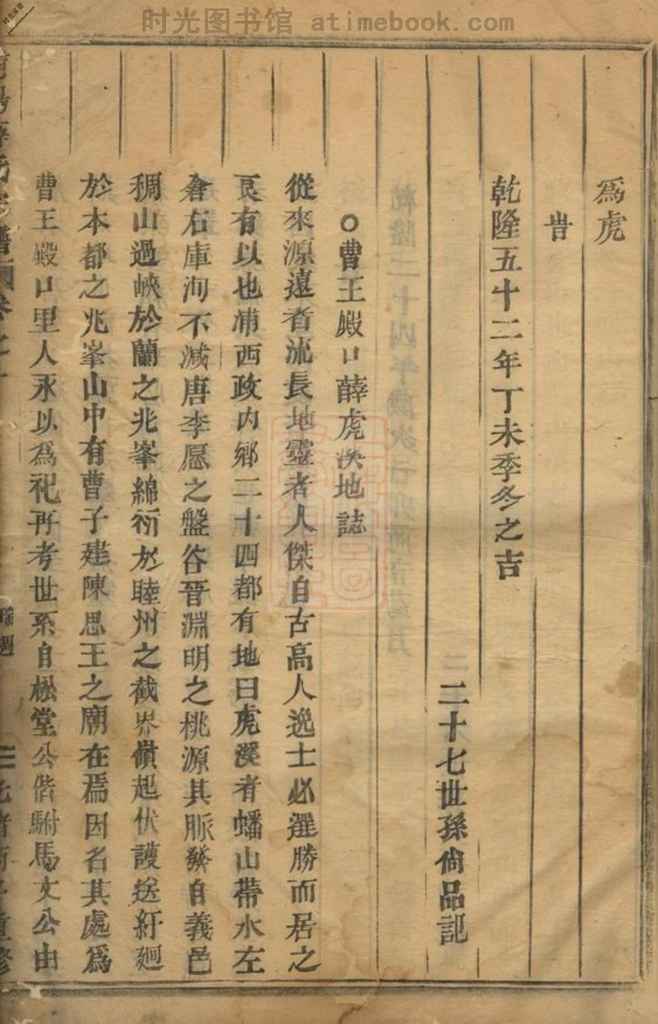 时光图书馆 atimebook.com
為虎
旹
乾隆五十二年丁未季冬之吉
二十七世孫尙品記
曹王殿口薛虎溪地誌
從來源遠者流長地靈者人傑自古高人逸士必選勝而居之
良有以也浦西政內鄉二十四都有地曰虎溪者蟠山帶水左
倉右庫洵不減唐李愿之盤谷晉淵明之桃源其脈發自義邑
稠山過峽於蘭之兆峯綿衍於睦州之截界嶺起伏護送紆廻
於本都之兆峯山中有曹子建陳思王之廟在焉因名其處為
曹王殿口里人永以為祀再考世系自松堂公偕駙馬文公由